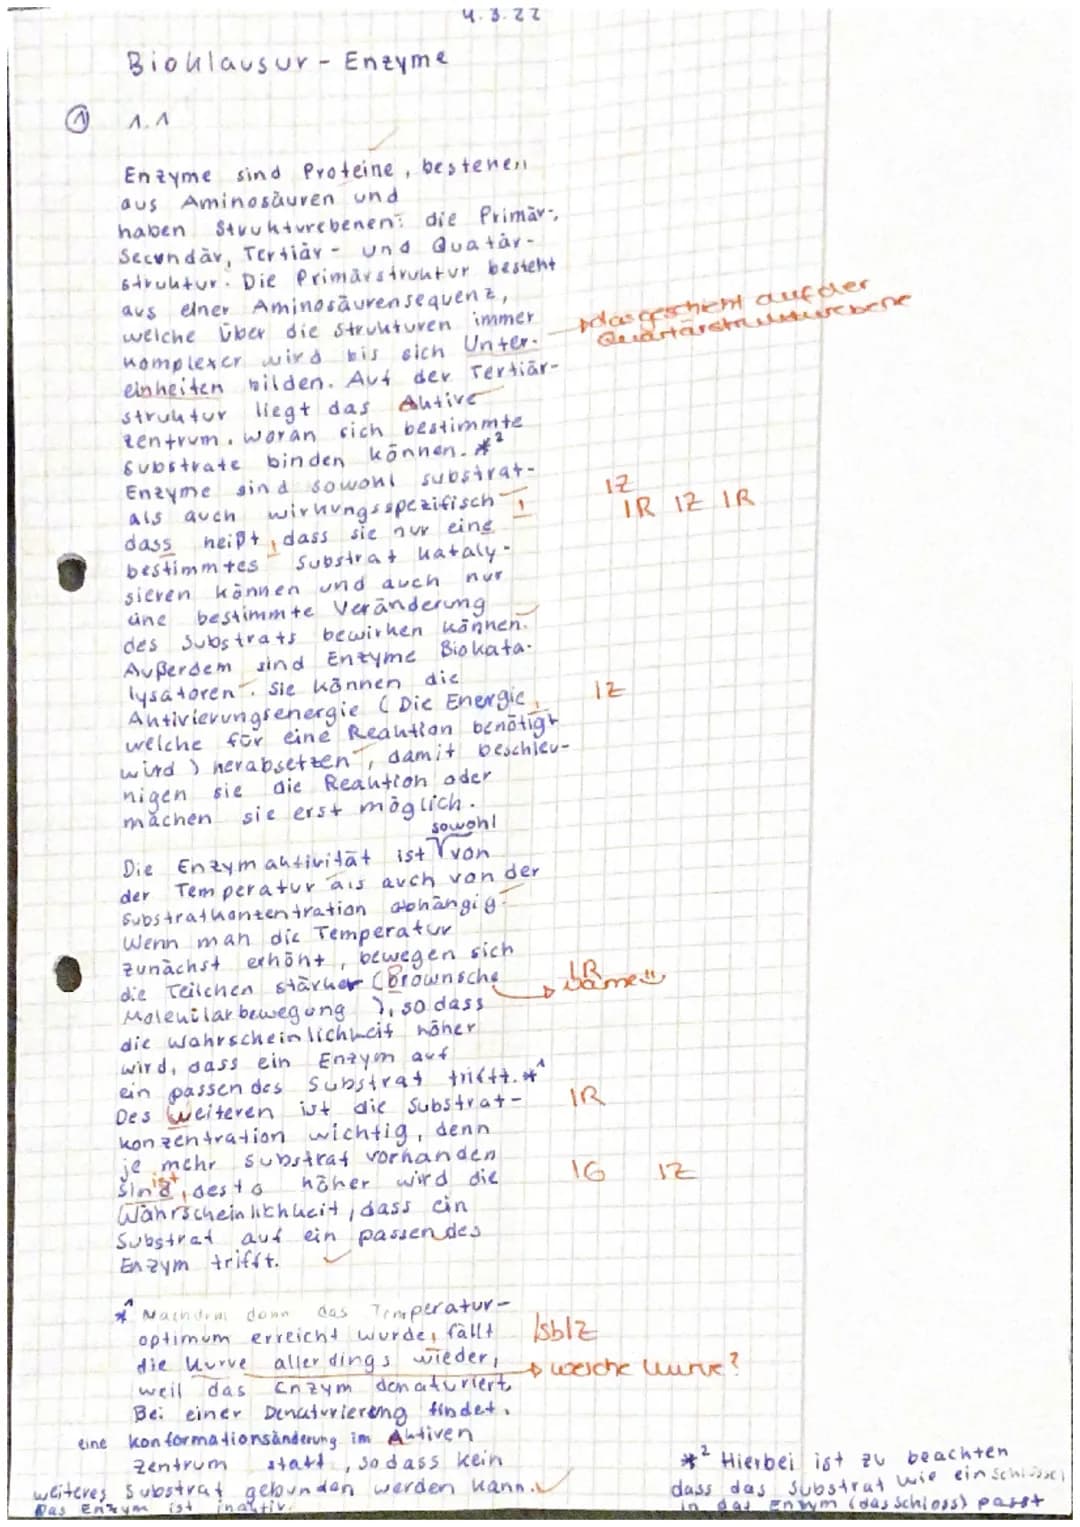 4.3.22
Bioklausur - Enzyme
① 1.1
Enzyme sind Proteine, bestehen
aus Aminosäuren und
haben Strukturebenen: die Primär-,
Secundär, Tertiär- und Quatär-
struktur. Die Primärstruktur besteht
aus einer Aminosäurensequenz,
welche über die Strukturen immer
komplexer wird bis sich Unter-
→ das geschieht auf der
Quartärstrukturebene
einheiten bilden. Auf der Tertiär-
struktur liegt das Aktive
Zentrum, woran sich bestimmte
Substrate binden können. *²
Enzyme sind sowohl substrat-
als auch wirkungsspezifisch,
IZ
dass heißt, dass sie nur eine
IR IZ IR
bestimmtes Substrat kataly-
sieren können und auch nur
eine bestimmte Veränderung
des Substrats bewirken können.
Außerdem sind Enzyme Biokata-
lysatoren. Sie können die
Aktivierungsenergie (Die Energie,
IZ
welche für eine Reaktion benötigt
wird) herabsetzen, damit beschleu-
nigen sie die Reaktion oder
machen sie erst möglich.
sowohl
Die Enzymaktivität ist von
der Temperatur als auch von der
Substratkonzentration abhängig.
Wenn man die Temperatur
zunächst erhöht, bewegen sich
die Teilchen stärker (Brownsche
IR
→ Name!!
Molekularbewegung), so dass
die Wahrscheinlichkeit höher
wird, dass ein Enzym auf
ein passendes Substrat trifft. *¹
Des Weiteren ist die Substrat-
IR
konzentration wichtig, denn
je mehr Substrat vorhanden
ist
sind, desto höher wird die
IG IZ
Wahrscheinlichkeit, dass ein
Substrat auf ein passendes
Enzym trifft.
*¹ Nachdem dann das Temperatur-
optimum erreicht wurde, fällt
IsbIZ
die Kurve allerdings wieder,
→ welche Kurve?
weil das Enzym denaturiert.
Bei einer Denaturierung findet
eine Konformationsänderung im Aktiven
Zentrum statt, so dass kein
weiteres Substrat gebunden werden kann.
Das Enzym ist inaktiv.
*² Hierbei ist zu beachten
dass das Substrat wie ein Schlüssel
in das Enzym (das Schloss) passt